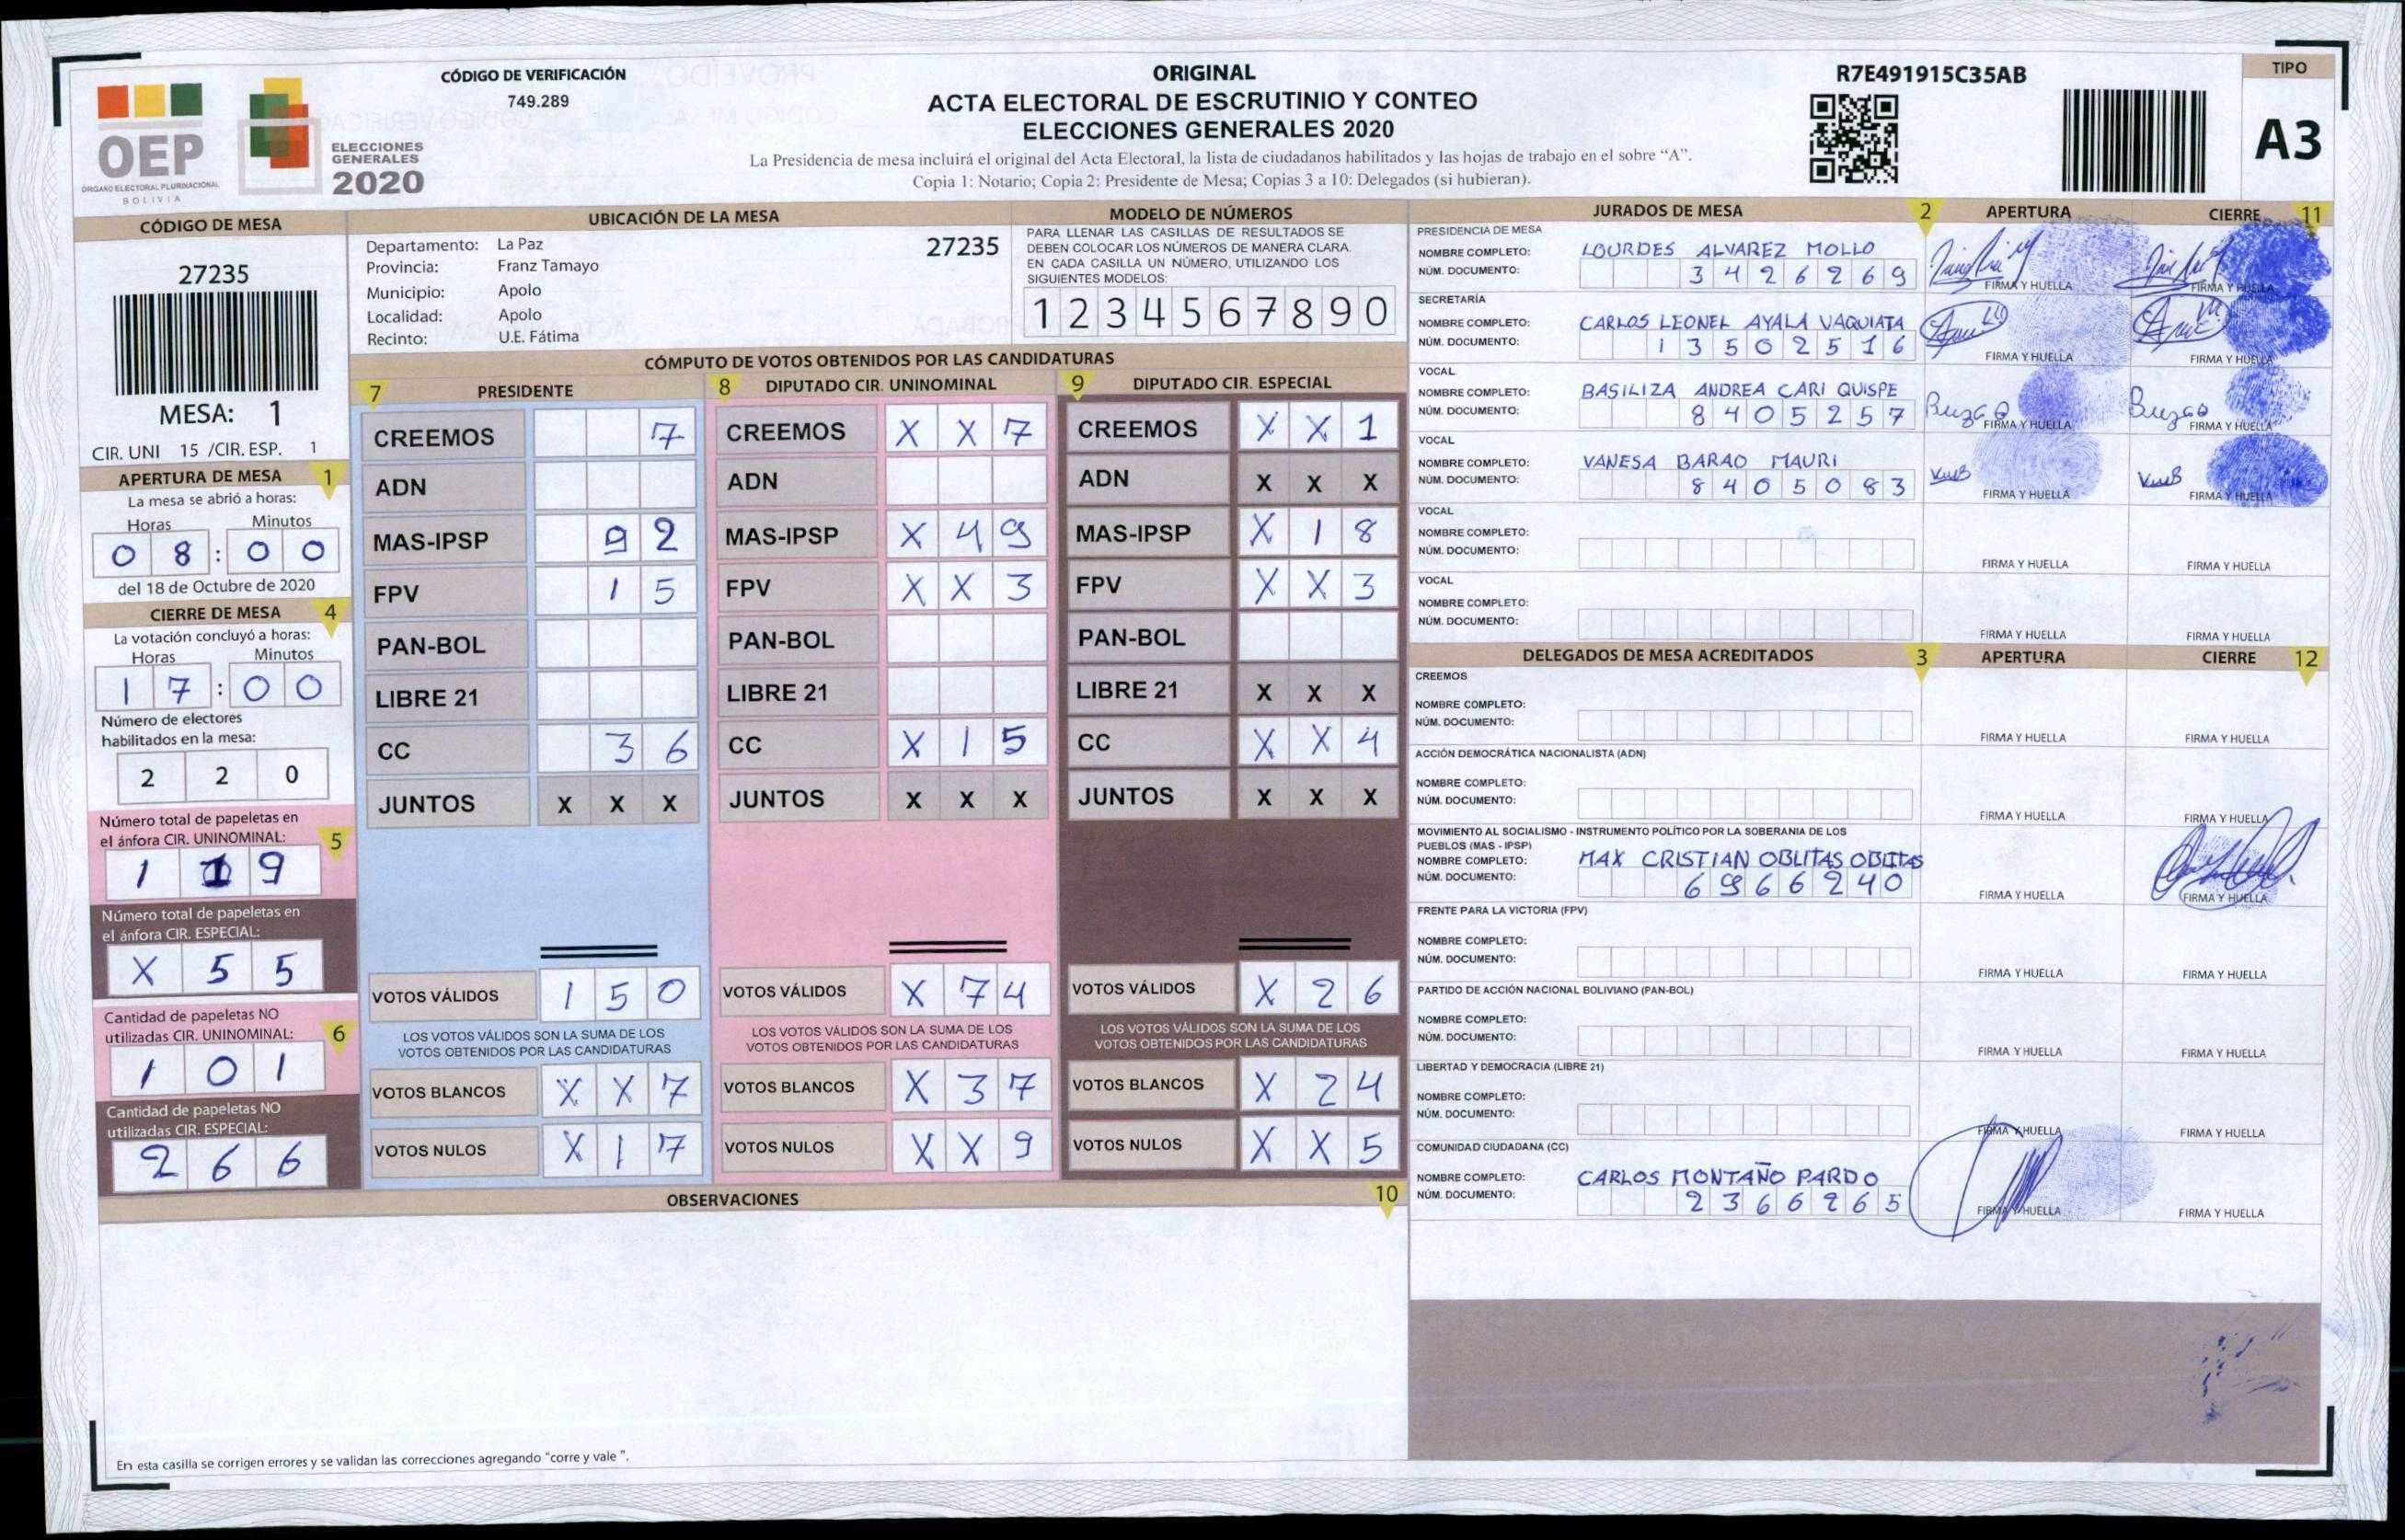 OEP
ÓRGANO ELECTORAL PLURINACIONAL
BOLIVIA
ELECCIONES
GENERALES
2020
CÓDIGO DE VERIFICACIÓN
749.289
ORIGINAL
ACTA ELECTORAL DE ESCRUTINIO Y CONTEO
ELECCIONES GENERALES 2020
La Presidencia de mesa incluirá el original del Acta Electoral, la lista de ciudadanos habilitados y las hojas de trabajo en el sobre “A”.
Copia 1: Notario; Copia 2: Presidente de Mesa; Copias 3 a 10: Delegados (si hubieran).
R7E491915C35AB
TIPO
A3
CÓDIGO DE MESA
27235
MESA: 1
CIR. UNI 15 /CIR. ESP. 1
APERTURA DE MESA 1
La mesa se abrió a horas:
Horas Minutos
0 8 : 0 0
del 18 de Octubre de 2020
CIERRE DE MESA 4
La votación concluyó a horas:
Horas Minutos
1 7 : 0 0
Número de electores
habilitados en la mesa:
2 2 0
Número total de papeletas en
el ánfora CIR. UNINOMINAL: 5
1 1 9
Número total de papeletas en
el ánfora CIR. ESPECIAL:
X 5 5
Cantidad de papeletas NO
utilizadas CIR. UNINOMINAL: 6
1 0 1
Cantidad de papeletas NO
utilizadas CIR. ESPECIAL:
2 6 6
UBICACIÓN DE LA MESA
Departamento: La Paz 27235
Provincia: Franz Tamayo
Municipio: Apolo
Localidad: Apolo
Recinto: U.E. Fátima
MODELO DE NÚMEROS
PARA LLENAR LAS CASILLAS DE RESULTADOS SE
DEBEN COLOCAR LOS NÚMEROS DE MANERA CLARA.
EN CADA CASILLA UN NÚMERO, UTILIZANDO LOS
SIGUIENTES MODELOS:
1 2 3 4 5 6 7 8 9 0
CÓMPUTO DE VOTOS OBTENIDOS POR LAS CANDIDATURAS
7 PRESIDENTE 8 DIPUTADO CIR. UNINOMINAL 9 DIPUTADO CIR. ESPECIAL
CREEMOS 7 CREEMOS X X 7 CREEMOS X X 1
ADN ADN ADN X X X
MAS-IPSP 9 2 MAS-IPSP X 4 9 MAS-IPSP X 1 8
FPV 1 5 FPV X X 3 FPV X X 3
PAN-BOL PAN-BOL PAN-BOL
LIBRE 21 LIBRE 21 LIBRE 21 X X X
CC 3 6 CC X 1 5 CC X X 4
JUNTOS X X X JUNTOS X X X JUNTOS X X X
VOTOS VÁLIDOS 1 5 0 VOTOS VÁLIDOS X 7 4 VOTOS VÁLIDOS X 2 6
LOS VOTOS VÁLIDOS SON LA SUMA DE LOS LOS VOTOS VÁLIDOS SON LA SUMA DE LOS LOS VOTOS VÁLIDOS SON LA SUMA DE LOS
VOTOS OBTENIDOS POR LAS CANDIDATURAS VOTOS OBTENIDOS POR LAS CANDIDATURAS VOTOS OBTENIDOS POR LAS CANDIDATURAS
VOTOS BLANCOS X X 7 VOTOS BLANCOS X 3 7 VOTOS BLANCOS X 2 4
VOTOS NULOS X 1 7 VOTOS NULOS X X 9 VOTOS NULOS X X 5
OBSERVACIONES 10
En esta casilla se corrigen errores y se validan las correcciones agregando "corre y vale ".
JURADOS DE MESA 2 APERTURA CIERRE 11
PRESIDENCIA DE MESA
NOMBRE COMPLETO: LOURDES ALVAREZ MOLLO
NÚM. DOCUMENTO: 3 4 2 6 2 6 9
FIRMA Y HUELLA FIRMA Y HUELLA
SECRETARÍA
NOMBRE COMPLETO: CARLOS LEONEL AYALA VAQUIATA
NÚM. DOCUMENTO: 1 3 5 0 2 5 1 6
FIRMA Y HUELLA FIRMA Y HUELLA
VOCAL
NOMBRE COMPLETO: BASILIZA ANDREA CARI QUISPE
NÚM. DOCUMENTO: 8 4 0 5 2 5 7
FIRMA Y HUELLA FIRMA Y HUELLA
VOCAL
NOMBRE COMPLETO: VANESA BARAO MAURI
NÚM. DOCUMENTO: 8 4 0 5 0 8 3
FIRMA Y HUELLA FIRMA Y HUELLA
VOCAL
NOMBRE COMPLETO:
NÚM. DOCUMENTO:
FIRMA Y HUELLA FIRMA Y HUELLA
VOCAL
NOMBRE COMPLETO:
NÚM. DOCUMENTO:
FIRMA Y HUELLA FIRMA Y HUELLA
DELEGADOS DE MESA ACREDITADOS 3 APERTURA CIERRE 12
CREEMOS
NOMBRE COMPLETO:
NÚM. DOCUMENTO:
FIRMA Y HUELLA FIRMA Y HUELLA
ACCIÓN DEMOCRÁTICA NACIONALISTA (ADN)
NOMBRE COMPLETO:
NÚM. DOCUMENTO:
FIRMA Y HUELLA FIRMA Y HUELLA
MOVIMIENTO AL SOCIALISMO - INSTRUMENTO POLÍTICO POR LA SOBERANIA DE LOS
PUEBLOS (MAS - IPSP)
NOMBRE COMPLETO: MAX CRISTIAN OBLITAS OBLITAS
NÚM. DOCUMENTO: 6 9 6 6 2 4 0
FIRMA Y HUELLA FIRMA Y HUELLA
FRENTE PARA LA VICTORIA (FPV)
NOMBRE COMPLETO:
NÚM. DOCUMENTO:
FIRMA Y HUELLA FIRMA Y HUELLA
PARTIDO DE ACCIÓN NACIONAL BOLIVIANO (PAN-BOL)
NOMBRE COMPLETO:
NÚM. DOCUMENTO:
FIRMA Y HUELLA FIRMA Y HUELLA
LIBERTAD Y DEMOCRACIA (LIBRE 21)
NOMBRE COMPLETO:
NÚM. DOCUMENTO:
FIRMA Y HUELLA FIRMA Y HUELLA
COMUNIDAD CIUDADANA (CC)
NOMBRE COMPLETO: CARLOS MONTAÑO PARDO
NÚM. DOCUMENTO: 2 3 6 6 2 6 5
FIRMA Y HUELLA FIRMA Y HUELLA